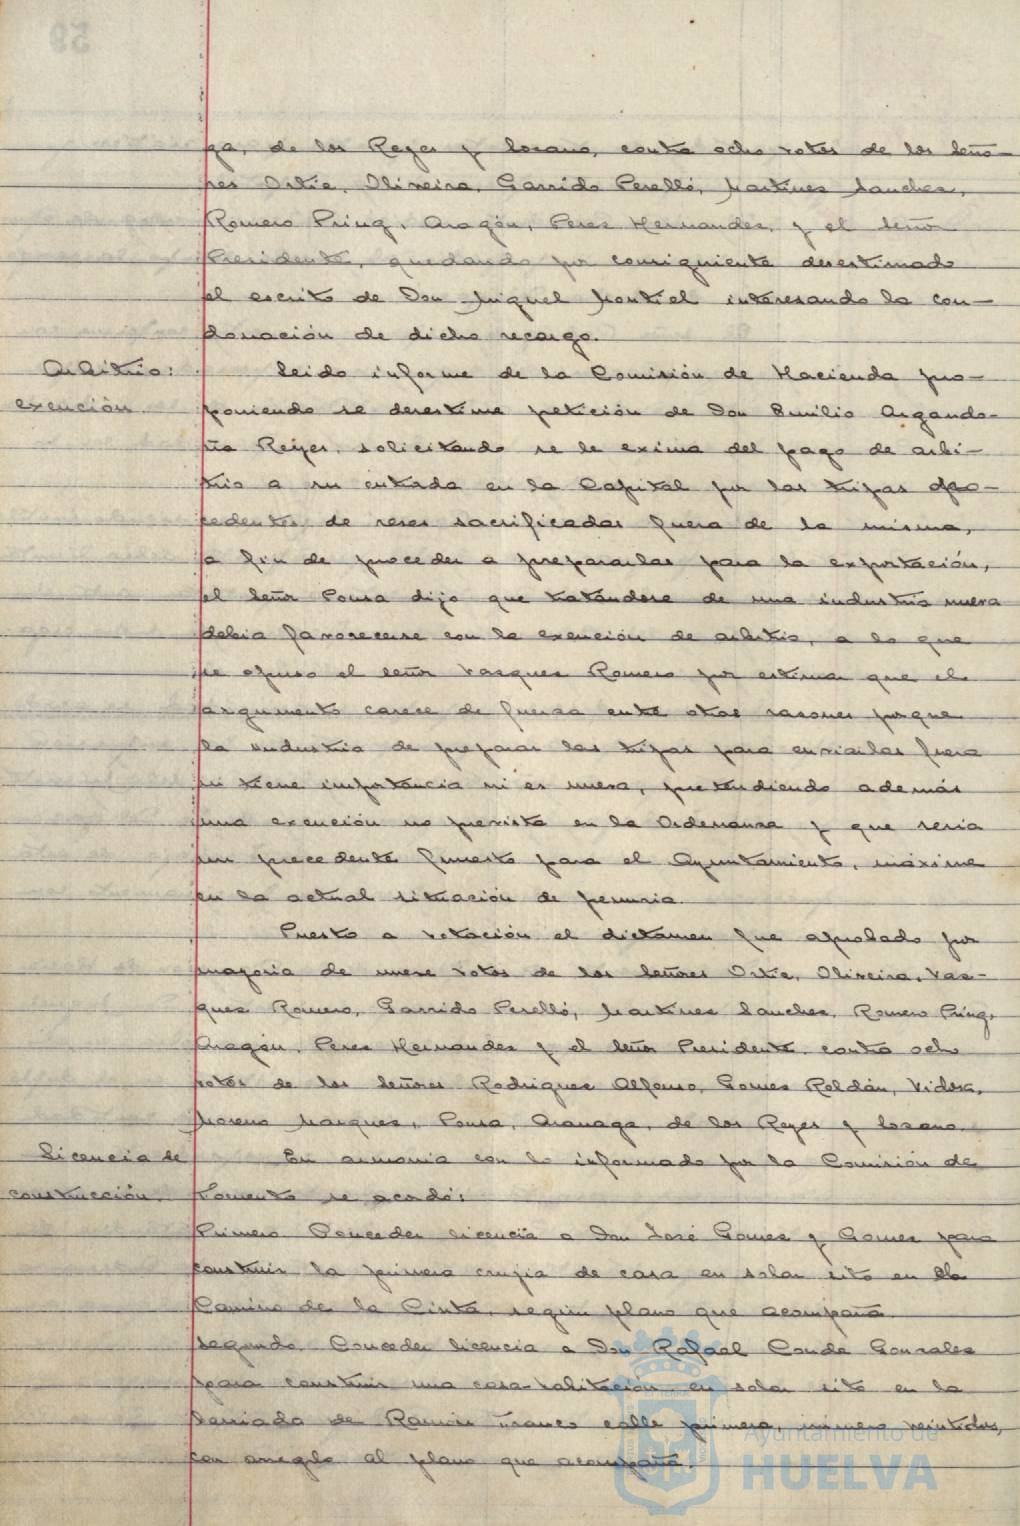 ga, de los Reyes y Lozano, contra ocho votos de los Seño-
res Ortiz, Oliveira, Garrido Perelló, Martinez Sanchez,
Romero Pring, Aragón, Perez Hernandez, y el Señor
Presidente, quedando por consiguiente desestimado
el escrito de Don Miguel Montiel interesando la con-
donación de dicho recargo.
Arbitrio:
exención.
Leido informe de la Comisión de Hacienda pro-
poniendo se desestime petición de Don Emilio Argando-
ña Reyes, solicitando se le exima del pago de arbi-
trio a su entrada en la Capital por las tripas
cedentes de reses sacrificadas fuera de la misma,
a fin de proceder a prepararlas para la exportación,
el Señor Ponsa dijo que tratándose de una industria nueva
debia favorecerse con la exención de arbitrio, a lo que
se opuso el Señor Vazquez Romero por estimar que el
argumento carece de fuerza entre otras razones porque
la industria de preparar las tripas para enviarlas fuera
ni tiene importancia ni es nueva, pretendiendo además
una exención no prevista en la Ordenanza y que seria
un precedente funesto para el Ayuntamiento, máxime
en la actual situación de penuria.
Puesto a votación el dictamen fue aprobado por
mayoria de nueve votos de los Señores Ortiz, Oliveira, Vaz-
quez Romero, Garrido Perelló, Martinez Sanchez, Romero Pring,
Aragón, Perez Hernandez y el Señor Presidente, contra ocho
votos de los Señores Rodriguez Alfonso, Gomez Roldán, Vidosa,
Moreno Marquez, Ponsa, Aranaga, de los Reyes y Lozano.
Licencia de
construcción.
En armonia con lo informado por la Comisión de
Fomento se acordó:
Primero Conceder licencia a Don José Gomez y Gomez para
construir la primera crujia de casa en solar sito en
Camino de la Cinta, según plano que acompaña.
Segundo. Conceder licencia a Don Rafael Conde Gonzalez
para construir una casa-habitación en solar sito en la
barriada de Ramón Franco calle primera, número veintidos,
con arreglo al plano que acompaña.
Ayuntamiento de
HUELVA